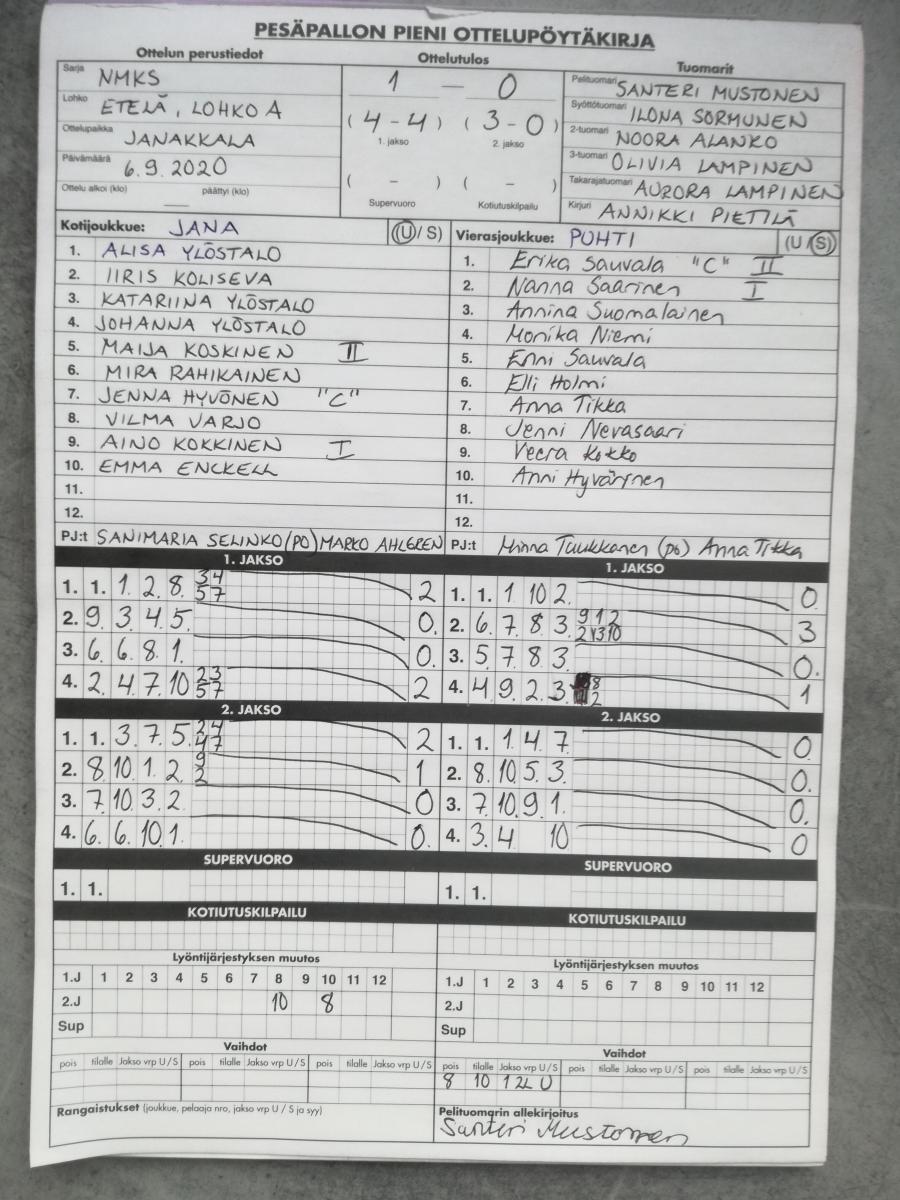 PESÄPALLON PIENI OTTELUPÖYTÄKIRJA
Ottelun perustiedot
Sarja NMKS
Lohko ETELÄ, LOHKO A
Ottelupaikka JANAKKALA
Päivämäärä 6.9.2020
Ottelu alkoi (klo) päättyi (klo)
Ottelutulos
1 — 0
(4-4) (3-0)
1. jakso 2. jakso
( - ) ( - )
Supervuoro Kotiutuskilpailu
Tuomarit
Pelituomari SANTERI MUSTONEN
Syöttötuomari ILONA SORMUNEN
2-tuomari NOORA ALANKO
3-tuomari OLIVIA LAMPINEN
Takarajatuomari AURORA LAMPINEN
Kirjuri ANNIKKI PIETILÄ
Kotijoukkue: JANA (U/S)
1. ALISA YLÖSTALO
2. IIRIS KOLISEVA
3. KATARIINA YLÖSTALO
4. JOHANNA YLÖSTALO
5. MAIJA KOSKINEN II
6. MIRA RAHIKAINEN
7. JENNA HYVÖNEN "C"
8. VILMA VARJO
9. AINO KOKKINEN I
10. EMMA ENCKELL
11.
12.
PJ:t SANIMARIA SELINKO (PO) MARKO AHLGREN
Vierasjoukkue: PUHTI (U/S)
1. Erika Sauvala "C" II
2. Nanna Saarinen I
3. Annina Suomalainen
4. Monika Niemi
5. Enni Sauvala
6. Elli Holmi
7. Anna Tikka
8. Jenni Nevasaari
9. Veera Kokko
10. Anni Hyvärinen
11.
12.
PJ:t Minna Tuukkanen (po) Anna Tikka
1. JAKSO
1. 1. 1. 2. 8. 34 57 2
2. 9. 3. 4. 5. 0.
3. 6. 6. 8. 1. 0.
4. 2. 4. 7. 10 23 57 2
1. JAKSO
1. 1. 1 10 2. 0.
2. 6. 7. 8 3. 912 3
3. 5. 7. 8 3. 0.
4. 4. 9. 2. 3. 8 2 1
2. JAKSO
1. 1. 3. 7. 5. 24 47 2
2. 8. 10. 1. 2. 9 2 1
3. 7. 10. 3. 2. 0
4. 6. 6. 10. 1. 0.
2. JAKSO
1. 1. 1. 4. 7. 0
2. 8. 10. 5. 3. 0.
3. 7. 10. 9. 1. 0.
4. 3. 4 10 0
SUPERVUORO
1. 1.
SUPERVUORO
1. 1.
KOTIUTUSKILPAILU
KOTIUTUSKILPAILU
Lyöntijärjestyksen muutos
1.J 1 2 3 4 5 6 7 8 9 10 11 12
2.J 10 8
Sup
Lyöntijärjestyksen muutos
1.J 1 2 3 4 5 6 7 8 9 10 11 12
2.J
Sup
Vaihdot
pois tilalle Jakso vrp U/S pois tilalle Jakso vrp U/S pois tilalle Jakso vrp U/S
Vaihdot
pois tilalle Jakso vrp U/S pois tilalle Jakso vrp U/S pois tilalle Jakso vrp U/S
8 10 1 2L U
Rangaistukset (joukkue, pelaaja nro, jakso vrp U / S ja syy)
Pelituomarin allekirjoitus
Santeri Mustonen